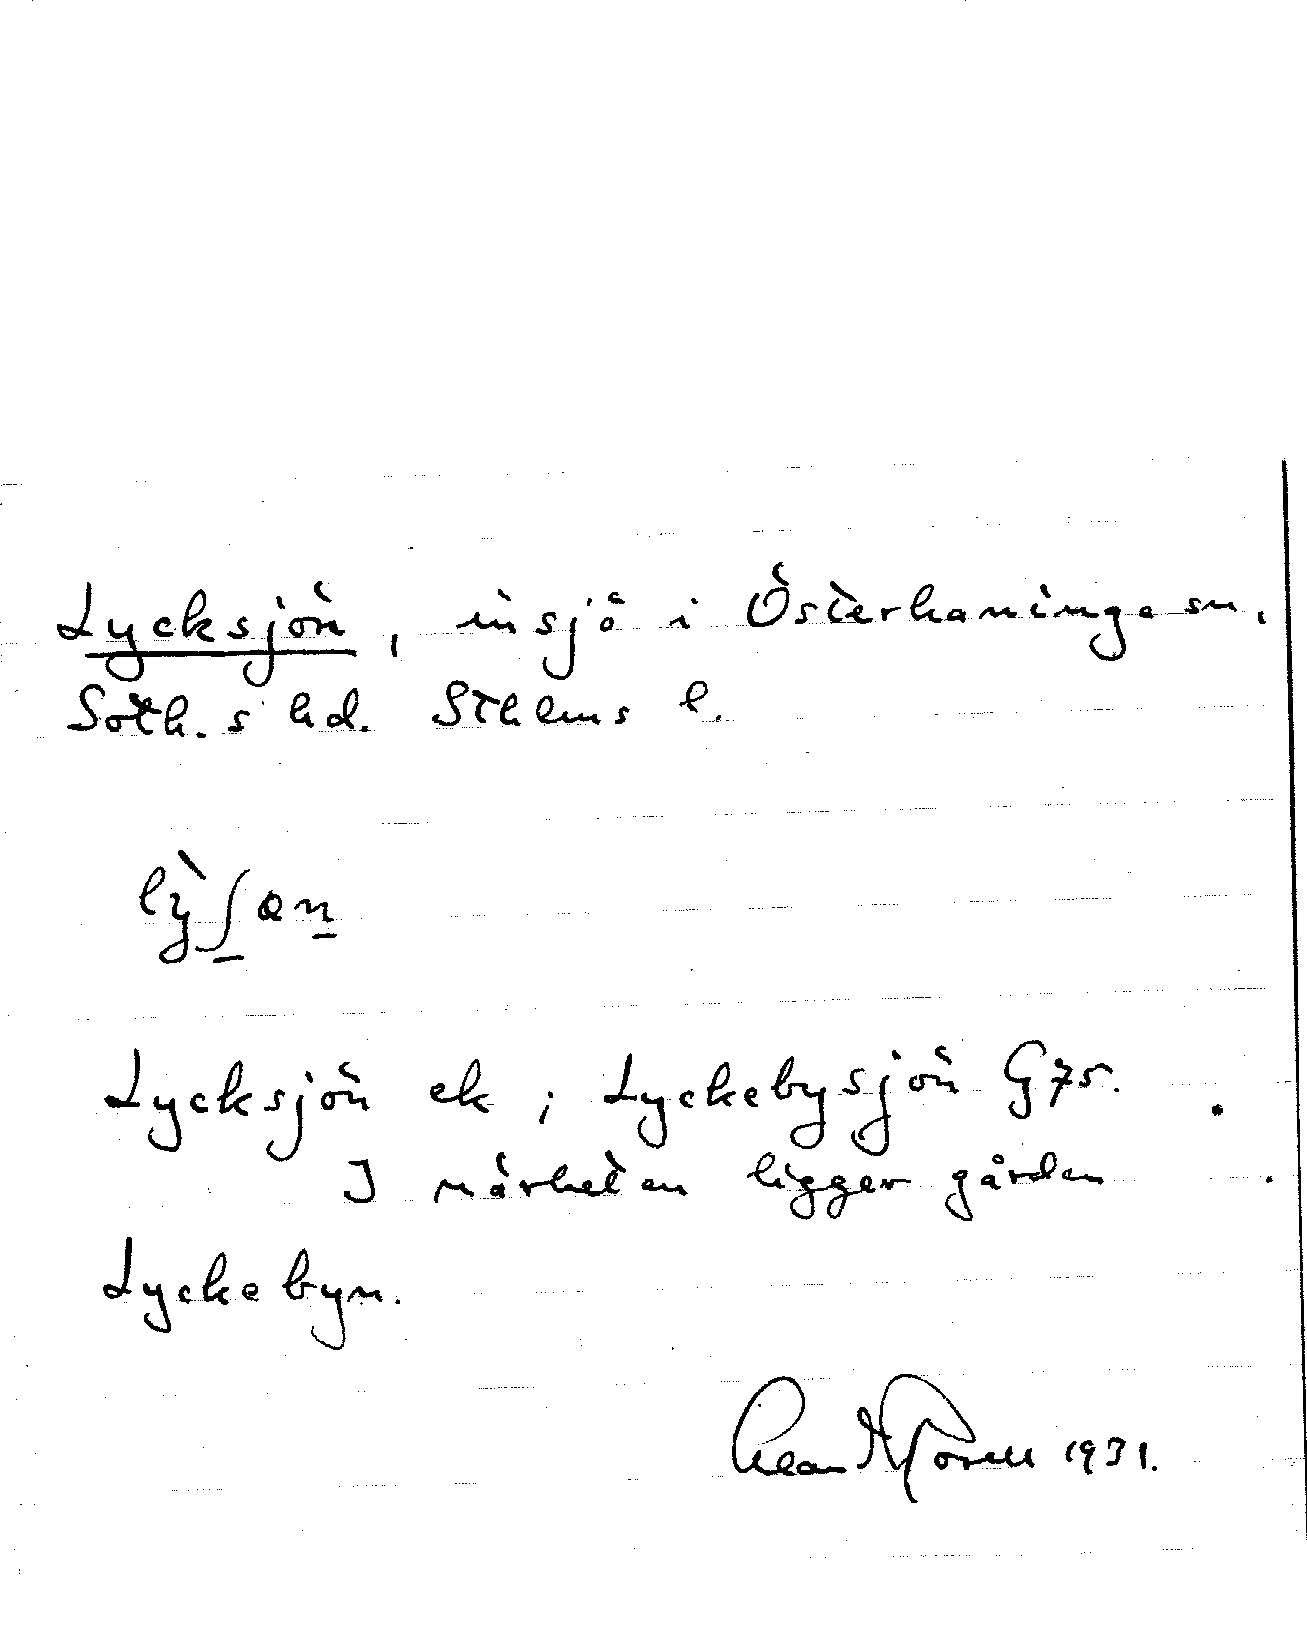 Lycksjön, insjö i Österhaninge sn,
Soth.s hd. Sthlms l.
lỳʃøn
Lycksjön ek; Lyckebysjön G75.
I närheten ligger gården
Lyckebyn.
1931.